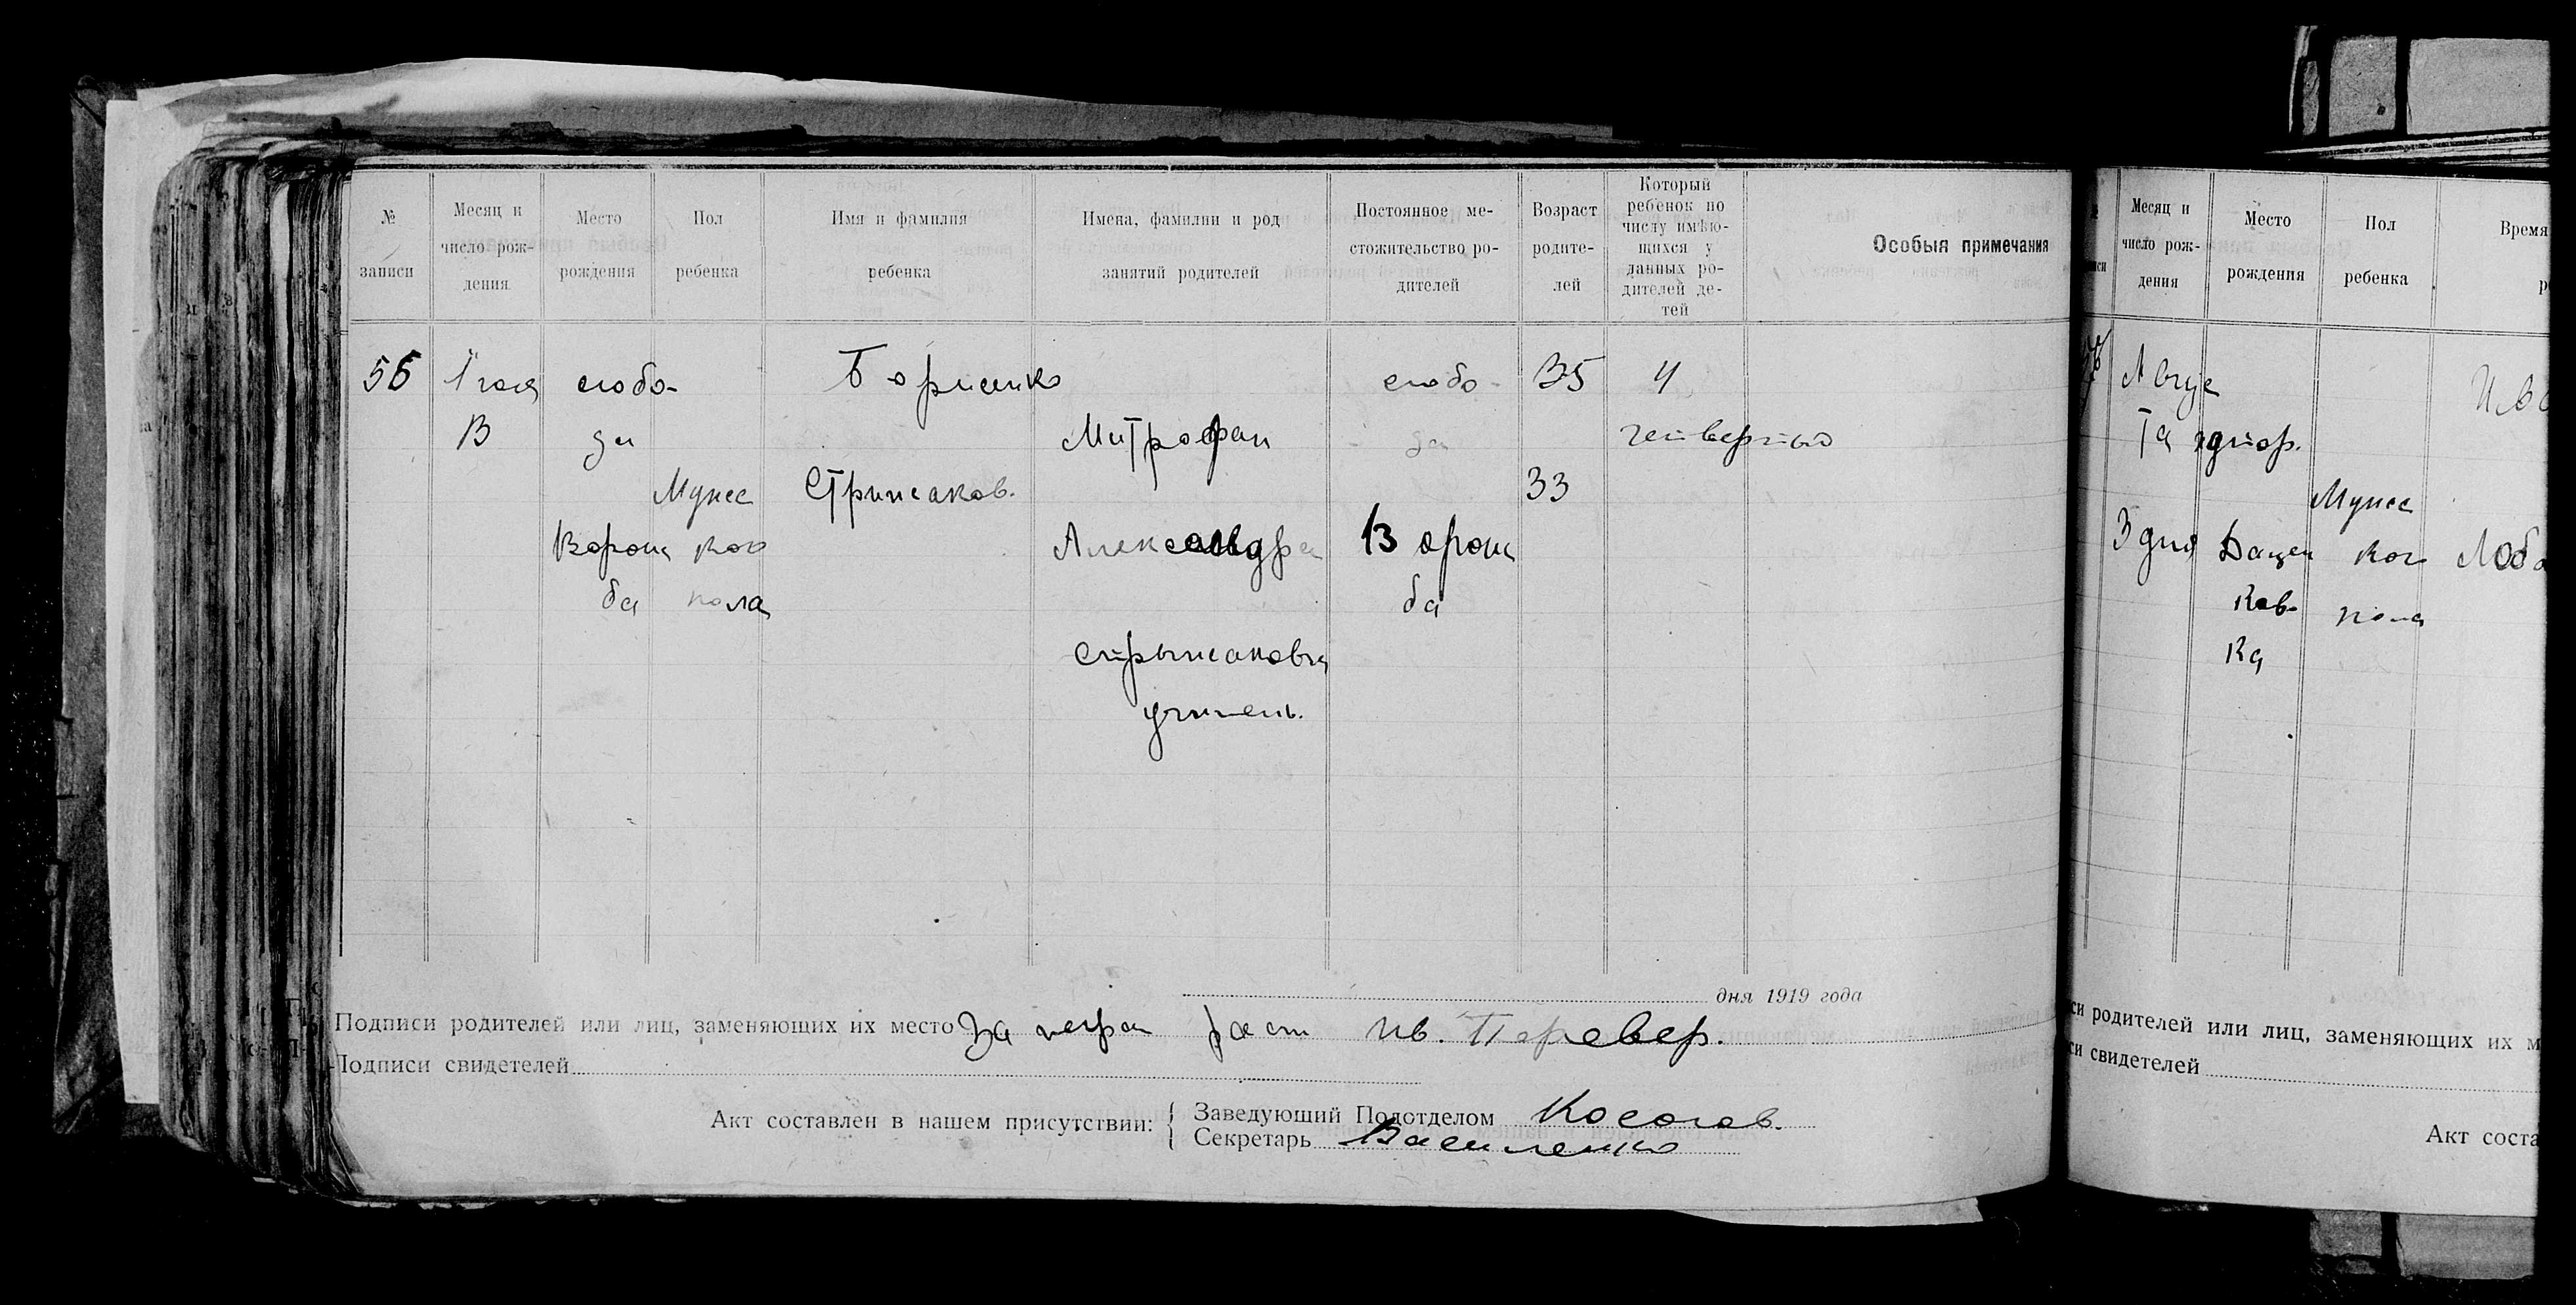 № записи
Месяц и число рождения
Место рождения
Пол ребенка
Имя и фамилия ребенка
Имена, фамилии и род занятий родителей
Постоянное местожительство родителей
Возраст родителей
Который ребенок по числу имѣющихся у данных родителей детей
Особыя примечания
56
слобо-
да
Ворош
ба
Мужс
ког
пола
Борисико
Стрижаков.
Митрофан
Александра
Стрыжаковы
учитель.
слобо-
да
Ворош
ба
35
33
4
четвертый
дня 1919 года
Подписи родителей или лиц, заменяющих их место За негра раст Ив. Перевер.
Подписи свидетелей
Акт составлен в нашем присутствии:
Заведующий Подотделом Косогов.
Секретарь Василенко
Месяц и число рождения
Место рождения
Пол ребенка
Время
Авгус
та
3 дня
хутор.
Дацен
ков-
ка
Мужс
ког
пола
Ива
Лоба
си родителей или лиц, заменяющих их м
си свидетелей
Акт соста